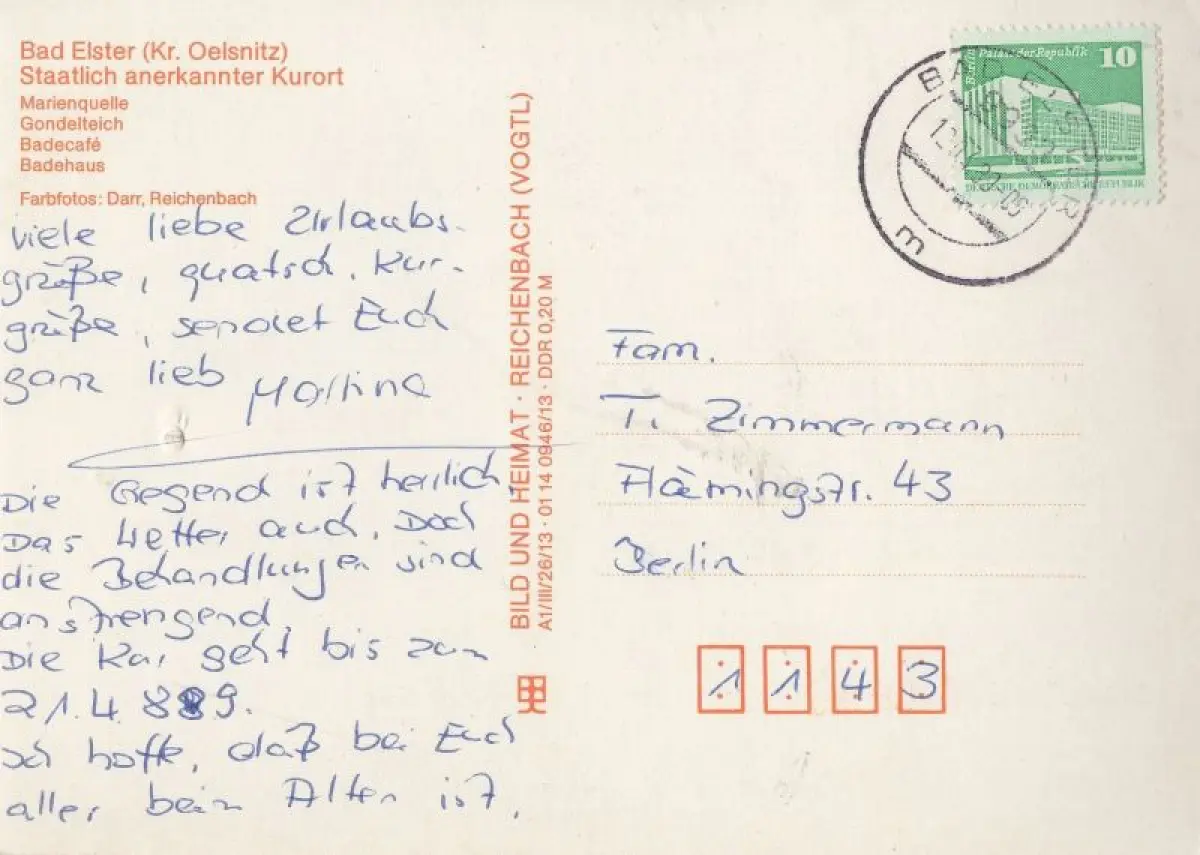 Bad Elster (Kr. Oelsnitz)
Staatlich anerkannter Kurort
Marienquelle
Gondelteich
Badecafé
Badehaus
Farbfotos: Darr, Reichenbach
viele liebe Urlaubs-
grüße, quatsch, Kur-
grüße, sendet Euch
ganz lieb Martina
Die Gegend ist herrlich,
Das Wetter auch. Doch
die Behandlungen sind
anstrengend.
Die Kur geht bis zum
21.4.89.
Ich hoffe, daß bei Euch
alles beim Alten ist.
BILD UND HEIMAT · REICHENBACH (VOGTL)
A1/III/26/13 · 01 14 0946/13 · DDR 0,20 M
Berlin Palast der Republik
10
DEUTSCHE DEMOKRATISCHE REPUBLIK
BAD ELSTER
m
Fam.
T. Zimmermann
Flämingstr. 43
Berlin
1 1 4 3